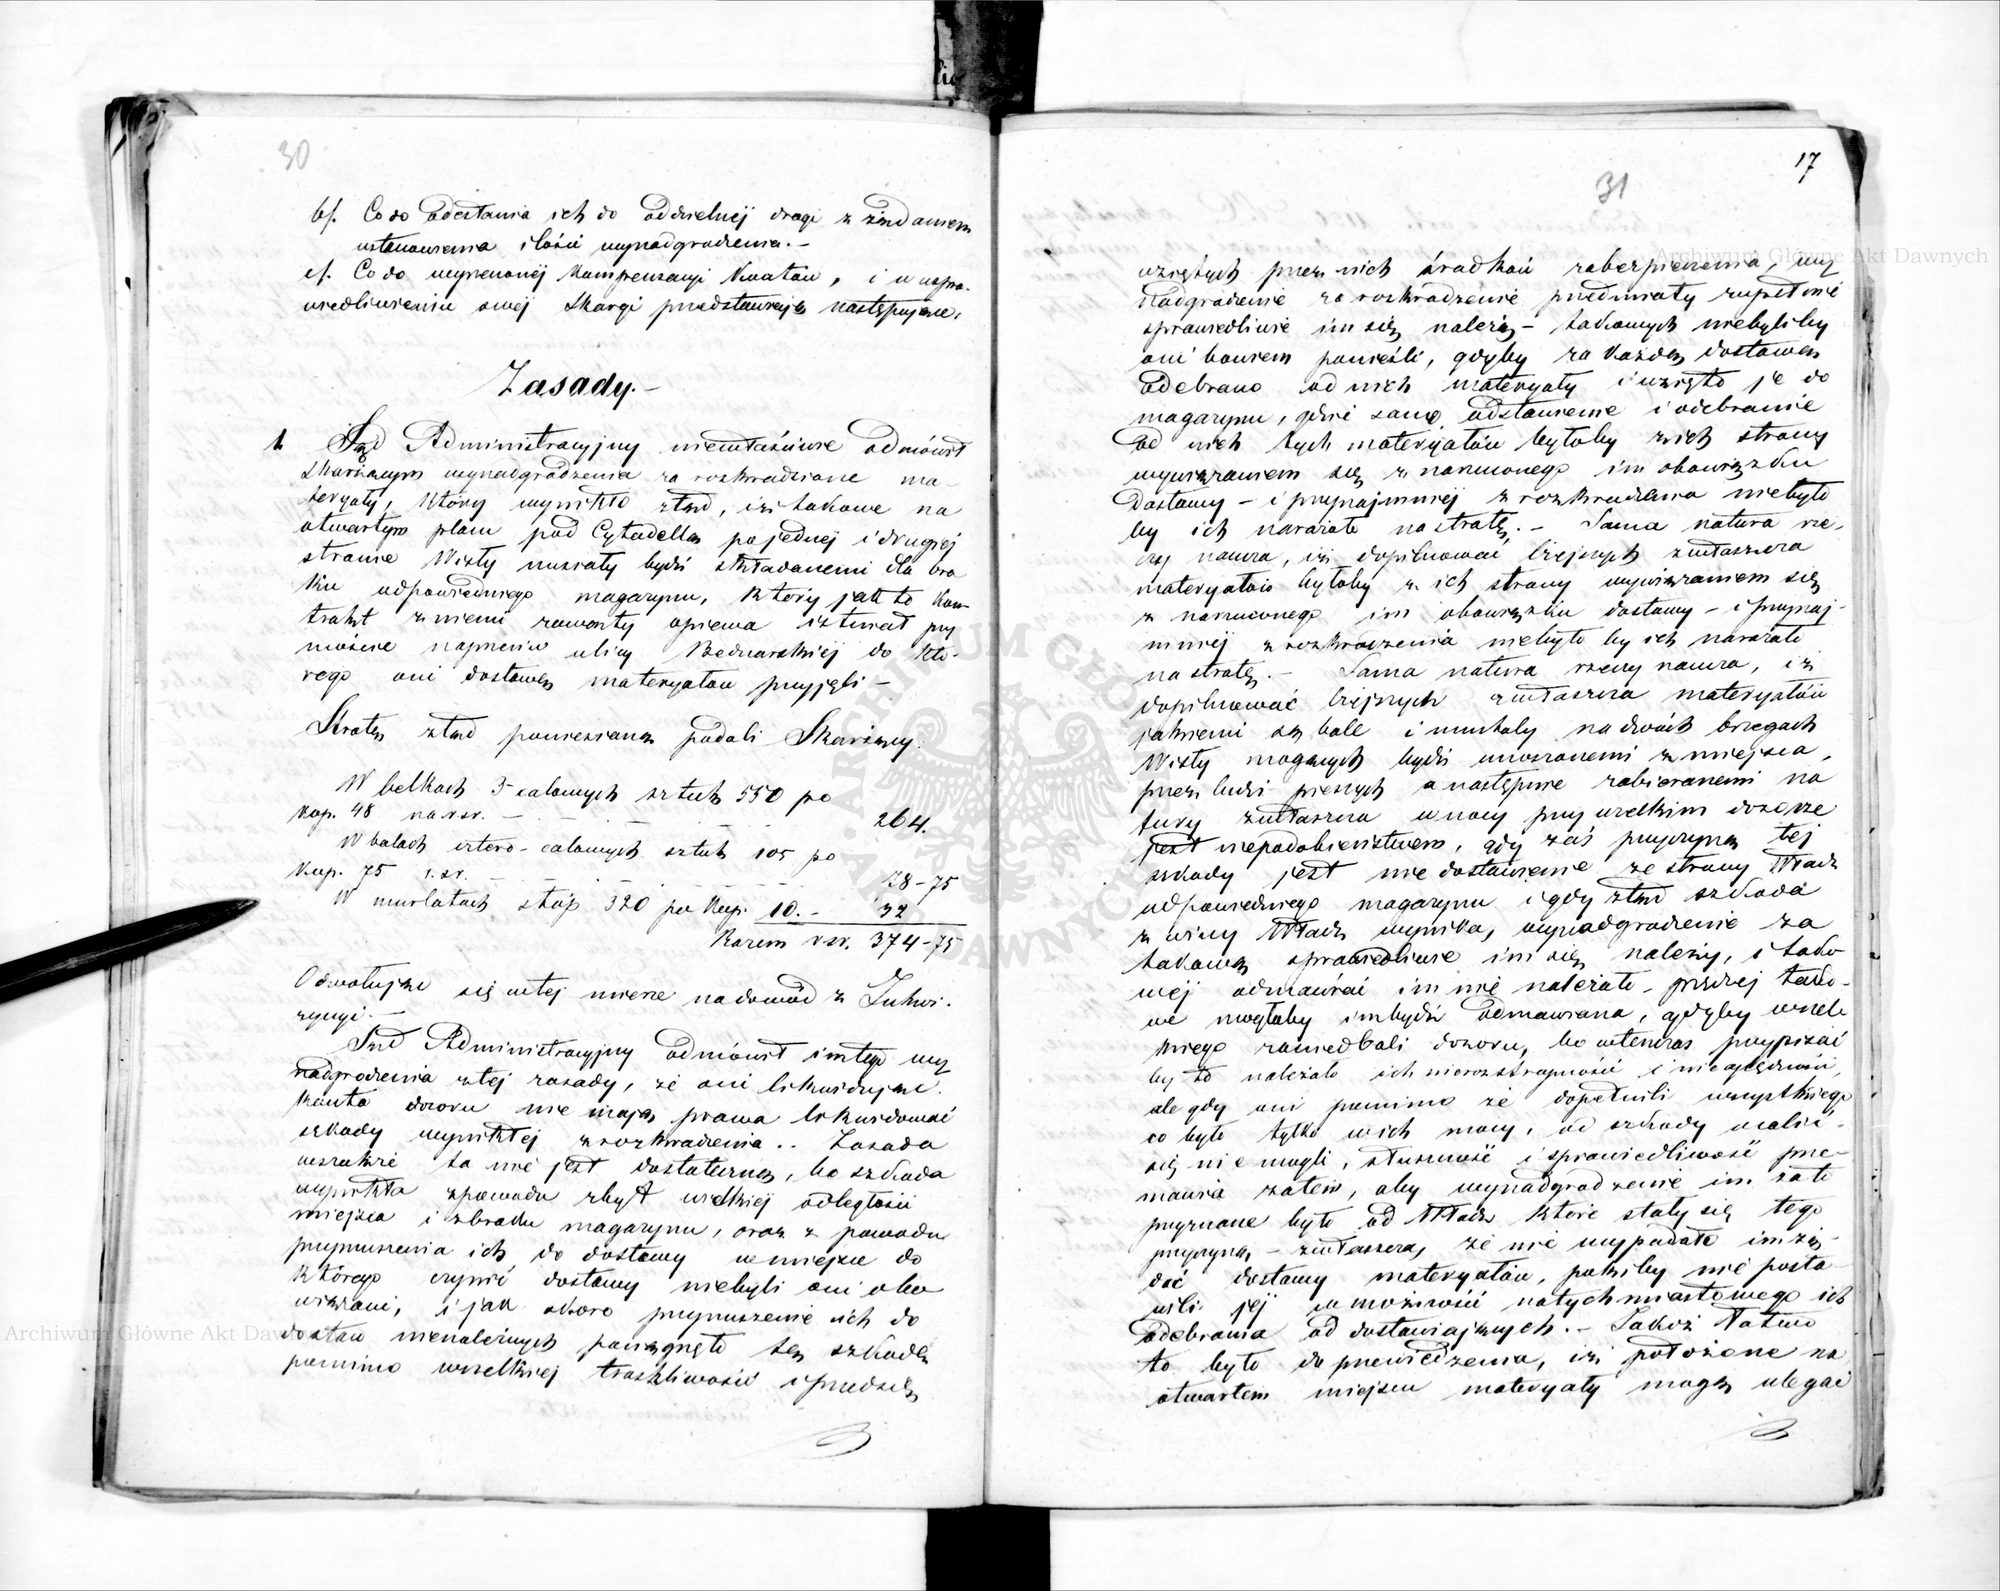 30
b/. Co do odesłania ich do oddzielnéj drogi z żądaniem
ustanowienia ilości wynadgrodzenia. –
c/. Co do wyrzeczonéj kompensacyi kwotów, i w uspra-
wiedliwieniu swéj skargi przedstawiają następujące,
Zasady. –
1. Sąd Administracyjny niewłaściwie odmówił
skarżącym wynadgrodzenia za rozkradzione ma-
teryały, który wynikło ztąd, iż takowe na
otwartym placu pod Cytadellą po jednej i drugiej
stronie Wisły musiały bydź składanemi dla bra
ku odpowiedniego magazynu, który jak to kon-
trakt z niemi zawarty opiewa istniał przy
mieście naprzeciw ulicy Bednarskiéj do któ-
rego oni dostawę materyałów przyjęli –
Stratę ztąd poniesioną podali Skarżący.
W belkach 3-calowych sztuk 550 po
kop. 48 na r.sr. – 264.
W balach cztero-calowych sztuk 105 po
kop. 75 r.sr. – 78–75
W murłatach stóp 320 po kop. 10. – 32
Razem r.sr. 374–75
Odwołując się w tej mierze na dowód z Inkwi-
zycyi. –
Sąd Administracyjny odmówił im tego wy
nadgrodzenia z tej zasady, że oni likwidując
koszta dozoru nie mają prawa likwidować
szkody wynikłej z rozkradzenia .. Zasada
wszakże ta nie jest dostateczną, bo szkoda
wynikła z powodu zbyt wielkiej odległości
miejsca i z braku magazynu, oraz z powodu
przymuszenia ich do dostawy w miejscu do
którego czynić dostawy niebyli oni obo
wiązani, i jak skoro przymuszenie ich do
dostaw nienależnych pociągnęło tę szkodę
pomimo wszelkiej troskliwości i przedsię
17
31
wziętych przez nich środków zabezpieczenia, wy
nadgrodzenie za rozkradzenie przedmioty zupełnie
sprawiedliwie im się należy – takowych niebyliby
oni bowiem ponieśli, gdyby za każdą dostawą
odebrano od nich materyały i wzięto je do
magazynu, gdzie samo odstawienie i odebranie
od nich tych materyałów byłoby z ich strony
wywiązaniem się z narzuconego im obowiązku
Dostawy – i przynajmniéj z rozkradzenia niebyło
by ich narażało na stratę. – Sama natura rze-
czy naucza, iż dopilnować liżejnych zwłaszcza
materyałów byłoby z ich strony wywiązaniem się
z narzuconego im obowiązku dostawy – i przynaj-
mniéj z rozkradzenia niebyło by ich narażało
na stratę. – Sama natura rzeczy naucza, iż
dopilnować zwłaszcza materyałów
jakiemi są bale i murłaty na dwóch brzegach
Wisły mogących bydź unoszonemi z miejsca,
przez ludzi pieszych a następnie zabieranemi na
fury zwłaszcza w nocy przy wielkim dozorze
jest niepodobieństwem, gdy zaś przyczyną tej
szkody jest niedostawienie ze strony Władz
odpowiedniego magazynu i gdy ztąd szkoda
z winy Władz wynika, wynadgrodzenie za
takową sprawiedliwie im się należy, i tako
wéj odmawiać im nie należało – prędzej tako-
we mogłoby im bydź odmawiana, gdyby wszel
kiego zaniedbali dozoru, bo wtenczas przypisać
by to należało ich nierozstropności i nieoględności,
ale gdy oni pomimo że dopełnili wszystkiego
co było tylko w ich mocy, od szkody ocalić
się nie mogli, słuszność i sprawiedliwość prze-
mawia zatém, aby wynadgrodzenie im zato
przyznane było od Władz które stały się tego
przyczyną, – zwłaszcza, że nie wypadało im żą-
dać dostawy materyałów, pókiby nie posta
wili jéj w możności natychmiastowego ich
odebrania od dostawiających. – Jakoż łatwo
to było do przewidzenia, iż położone na
otwartem miejscu materyały mogą ulegać